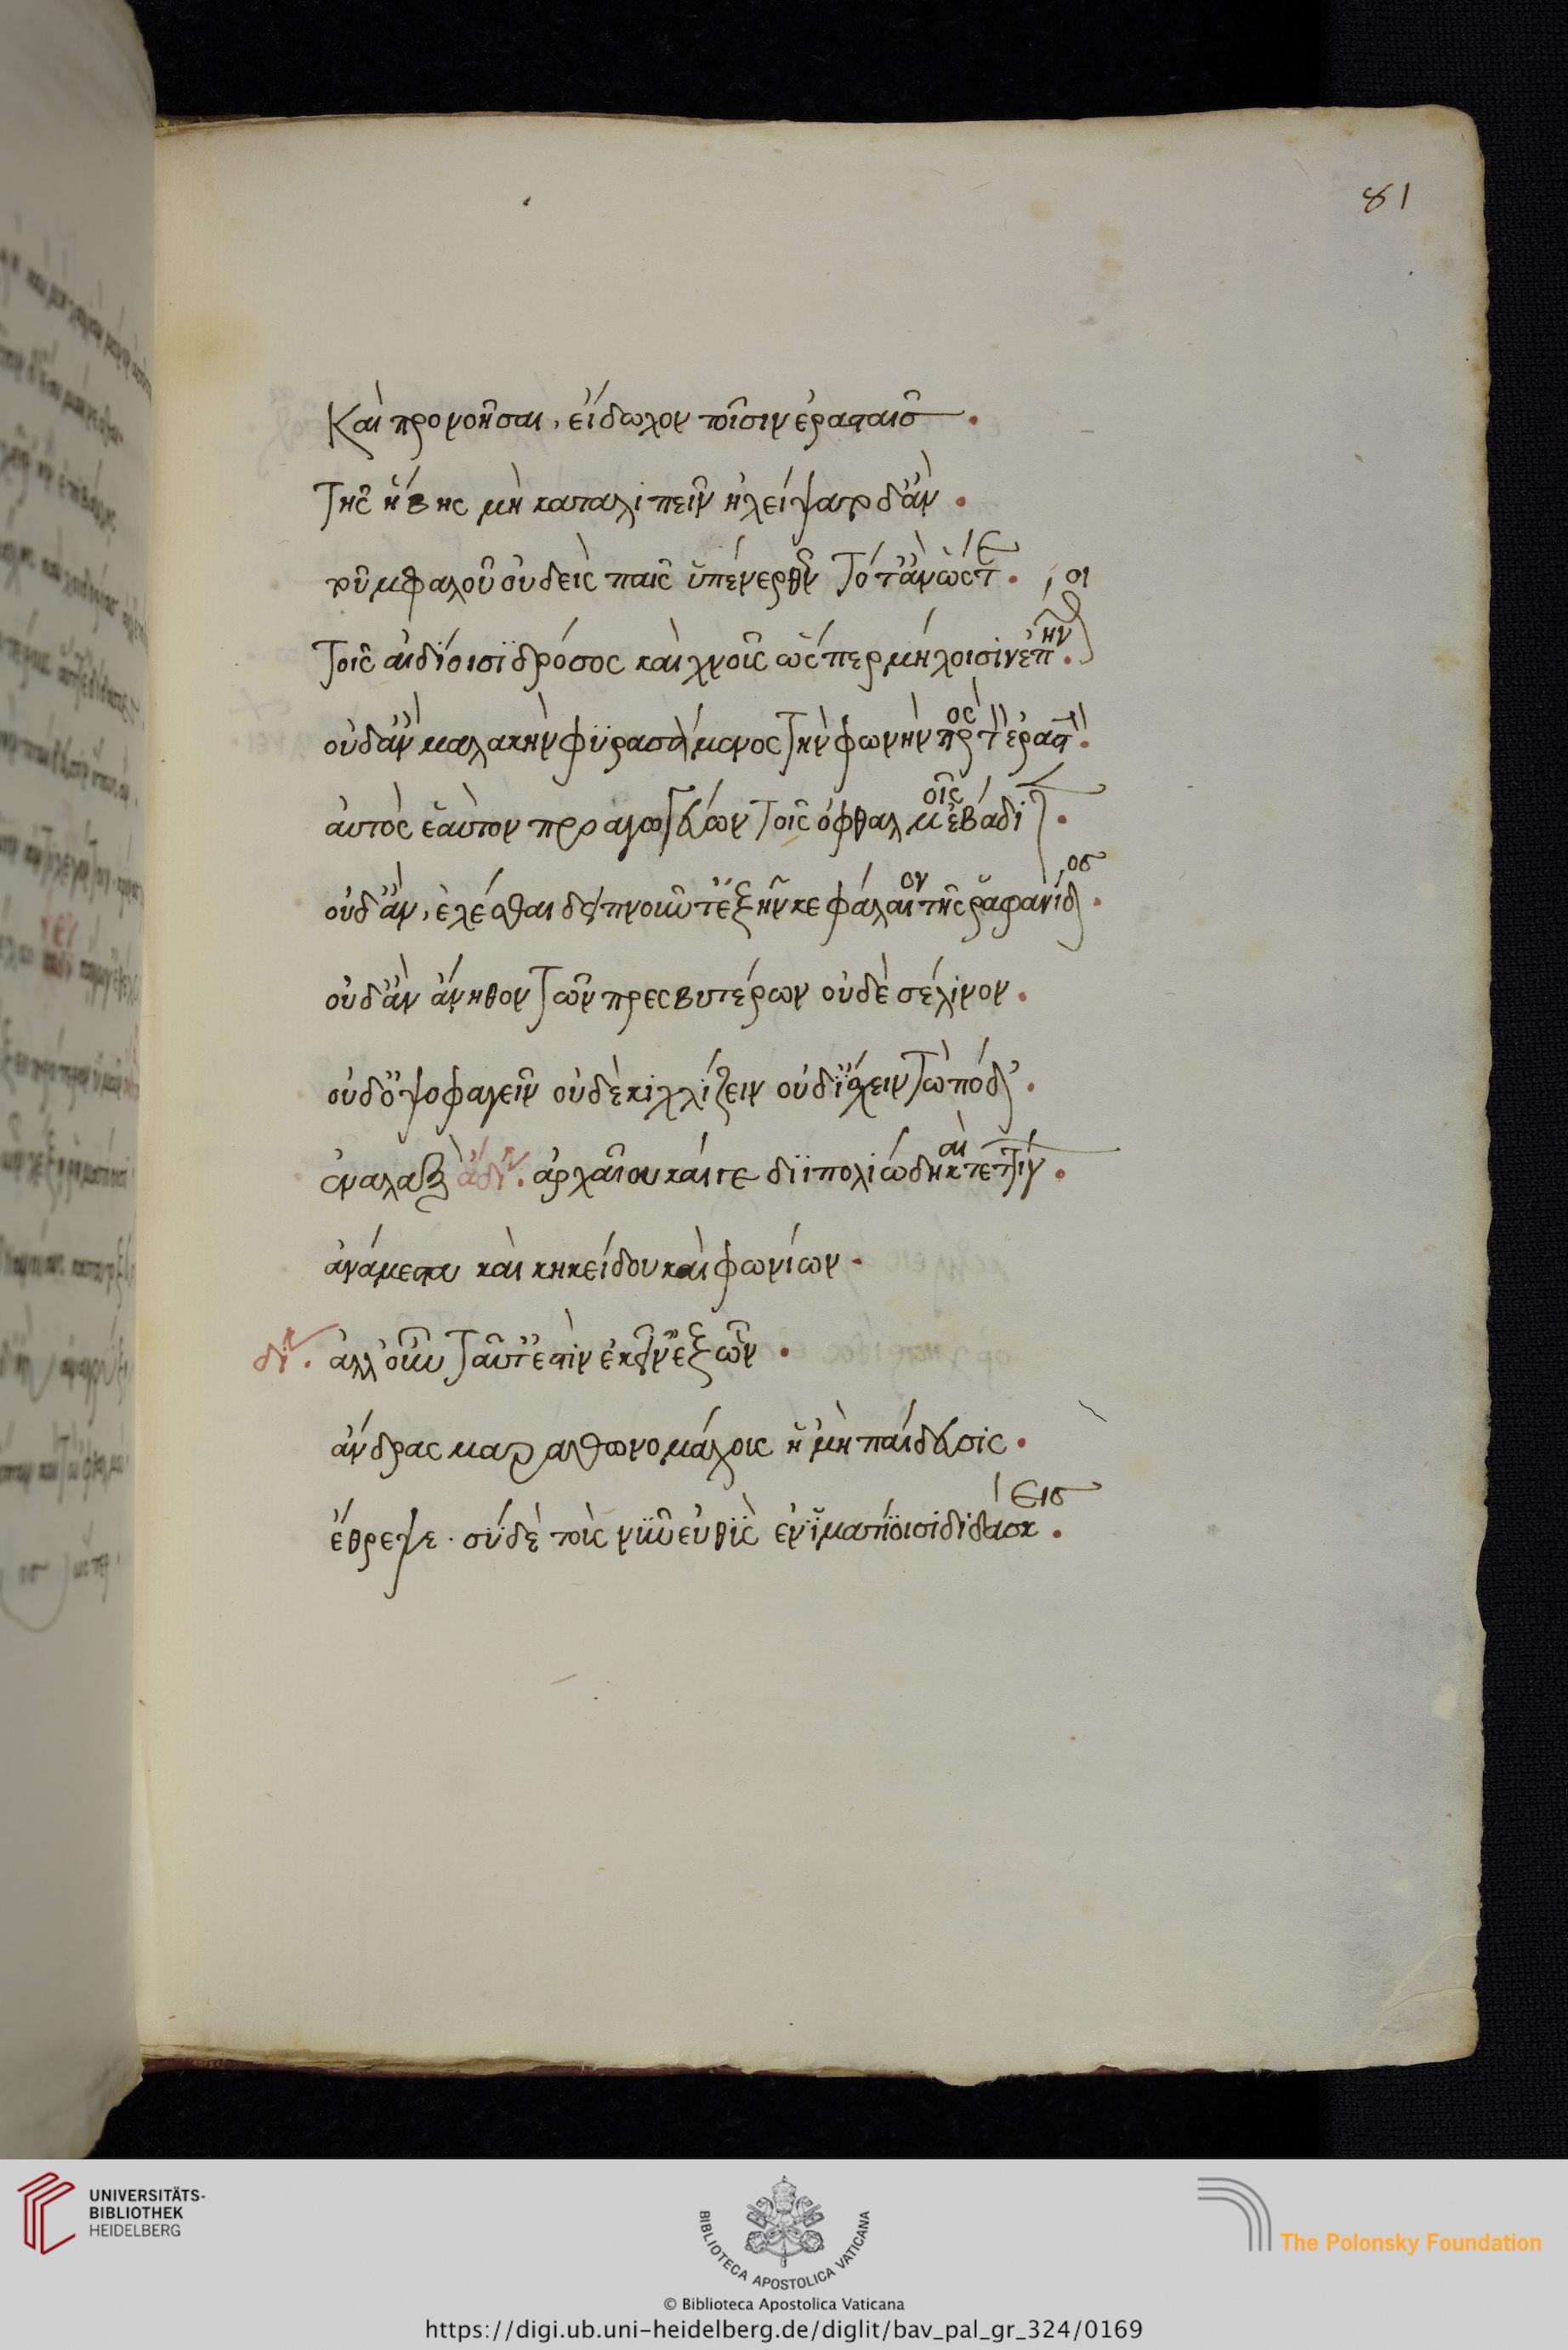 81
Καὶ προνοῆσαι, εἴδωλον τοῖσιν ἐρασταῖσ.
Τῆς ἥβης μὴ καταλιπεῖν ἠλείψατο δἂν.
τοῦμφαλοῦ οὐδεὶς παῖς ὑπένερθεν Τότἂν ὥςτε.
Τοῖς αἰδίοισι δρόσος καὶ χνοῦς ὥςπερ μήλοισιν ἐπήν.
οὐδἂν μαλακὴν φυρασάμενος Τὴν φωνὴν πρὸς τὸν ἐραστὴν.
ἀυτὸς ἑαὐτὸν προαγωγεύων Τοῖς ὀφθαλμοῖς ἐβάδιζ.
οὐδἂν, ἑλέσθαι δειπνοῦντ ἐξῆν κεφάλαιον τῆς ῥαφανίδος.
οὐδἂν ἄνηθον Τῶν πρεσβυτέρων οὐδὲ σέλινον.
οὐδὀψοφαγεῖν οὐδὲ κιχλίζειν οὐδἴσχειν Τὼ πόδ.
ἐναλλὰξ ἄδι. ἀρχαῖου κάιγε διϊπολιώδη καὶ τεττίγ.
ἀνάμεστα καὶ κηκείδου καὶ φωνίων.
δι. ἀλλοὖν Ταῦτἐστὶν ἐκεῖν ἐξ ὧν.
ἄνδρας μαραθωνομάχοις ἡμὴ παίδευσις.
ἔθρεψε. σύ δὲ τοὺς νῦν εὐθὺς ἐν ἱματίοισι διδάσκεισ.
UNIVERSITÄTS-
BIBLIOTHEK
HEIDELBERG
BIBLIOTECA APOSTOLICA VATICANA
The Polonsky Foundation
© Biblioteca Apostolica Vaticana
https://digi.ub.uni-heidelberg.de/diglit/bav_pal_gr_324/0169